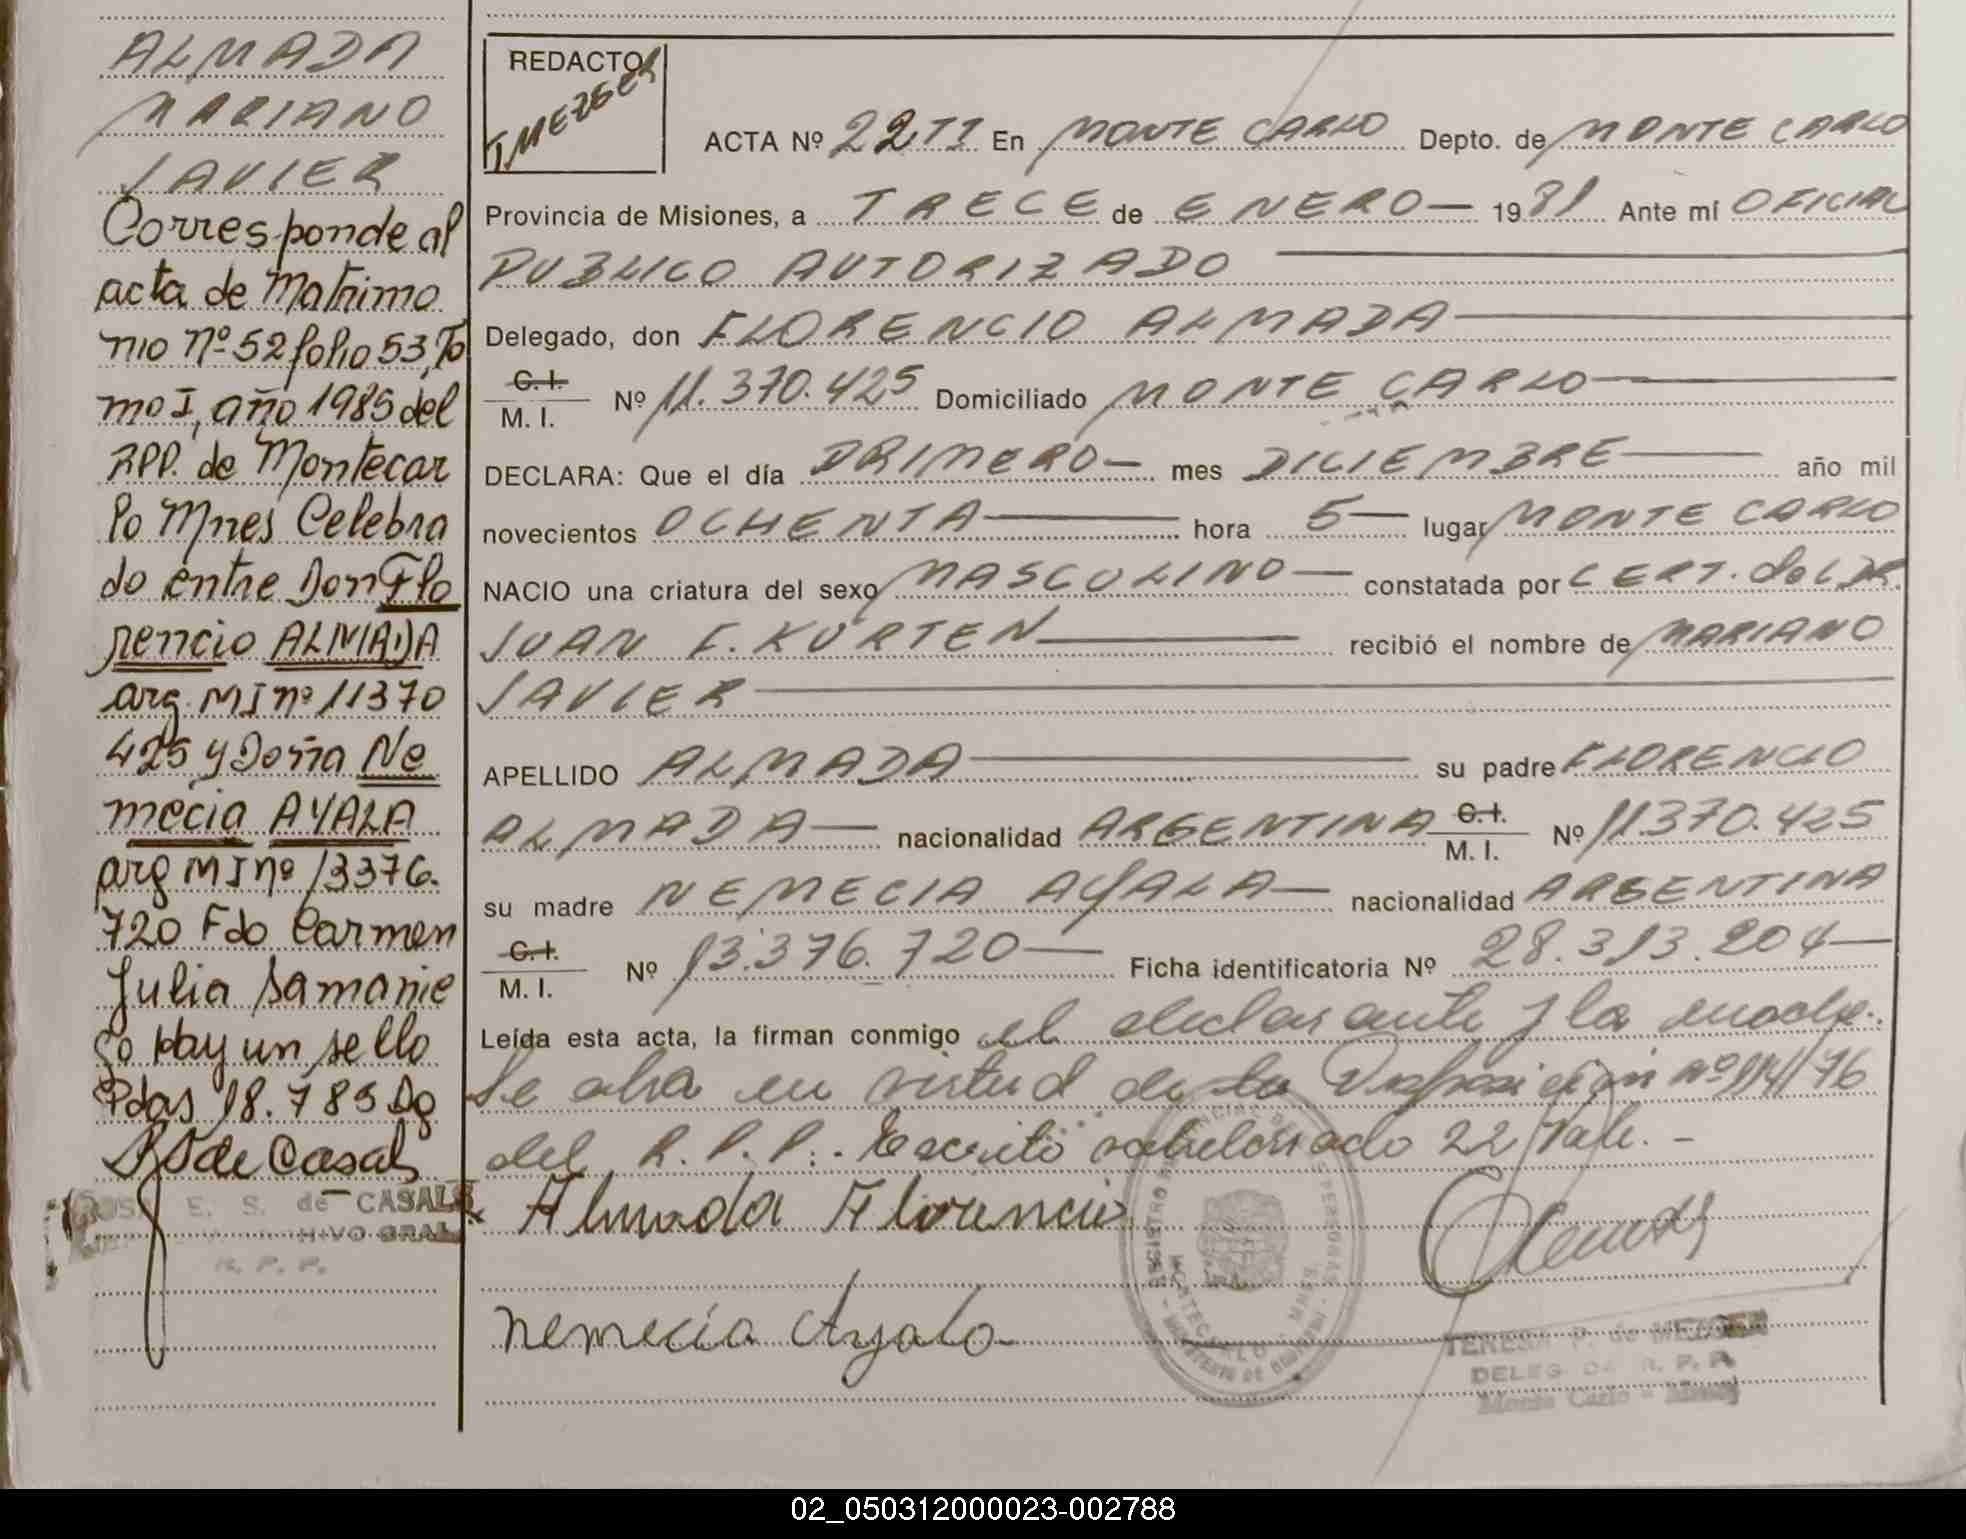 ALMADA
MARIANO
JAVIER
Corresponde al
acta de Matrimo
nio Nº 52 folio 53, To
mo I, año 1985 del
RPP. de Montecar
lo Mnes Celebra
do entre Don Flo
rencio ALMADA
arg. MI nº 11370
425 y Doña Ne
mecia AYALA
arg MI nº 13376.
720 Fdo Carmen
Julia Samanie
go Hay un sello
Pdas 18.785 Dg
RS de Casals
E. S. de CASALS
HIVO GRAL
R. P. P.
REDACTO
T. MEZGER
ACTA Nº 22 TI En MONTE CARLO Depto. de MONTE CARLO
Provincia de Misiones, a TRECE de ENERO 1981 Ante mí OFICIAL
PUBLICO AUTORIZADO
Delegado, don FLORENCIO ALMADA
C. I.
M. I. Nº 11.370.425 Domiciliado MONTE CARLO
DECLARA: Que el día PRIMERO mes DICIEMBRE año mil
novecientos OCHENTA hora 5 lugar MONTE CARLO
NACIO una criatura del sexo MASCULINO constatada por CERT. del DR.
JUAN F. KURTEN recibió el nombre de MARIANO
JAVIER
APELLIDO ALMADA su padre FLORENCIO
ALMADA nacionalidad ARGENTINA C. I. M. I. Nº 11.370.425
su madre NEMECIA AYALA nacionalidad ARGENTINA
C. I.
M. I. Nº 13.376.720 Ficha identificatoria Nº 28.313.204
Leída esta acta, la firman conmigo el declarante y la madre.
Se abra en virtud de la Disposición nº 114/76
del R. P. P. Escrito sobreborrado 22 Vale.
Almada Florencio
Nemecia Ayala
TERESA P. de MEZGER
DELEG. DE R. P. P.
Monte Carlo - Mnes
02_050312000023-002788